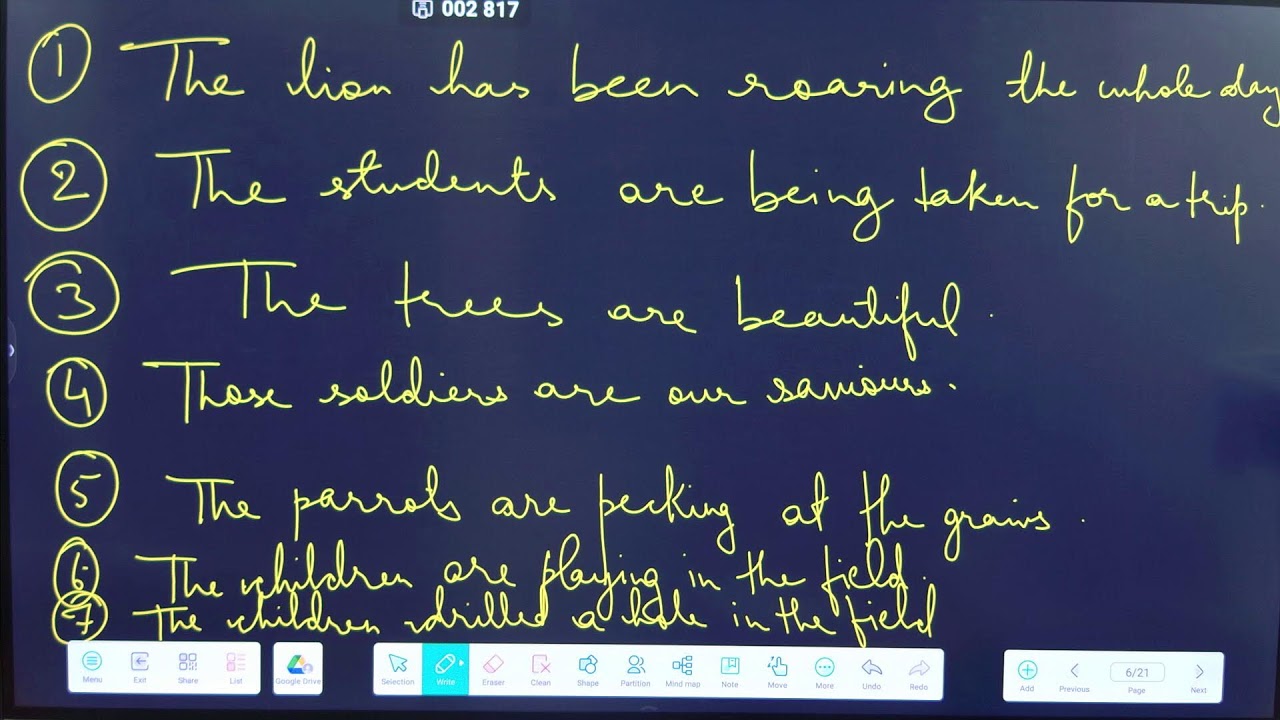 002 817
① The lion has been roaring the whole day
② The students are being taken for a trip.
③ The trees are beautiful.
④ Those soldiers are our saviours.
⑤ The parrots are pecking at the grains.
⑥ The children are playing in the field.
⑦ The children drilled a hole in the field
Menu Exit Share List Google Drive Selection Write Eraser Clean Shape Partition Mind map Note Move More Undo Redo Add Previous 6/21 Page Next